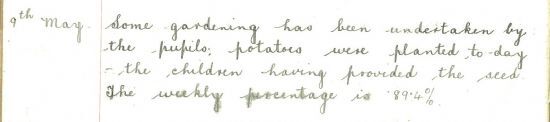 9th May. Some gardening has been undertaken by
the pupils; potatoes were planted to-day
- the children having provided the seed.
The weekly percentage is 89.4%.